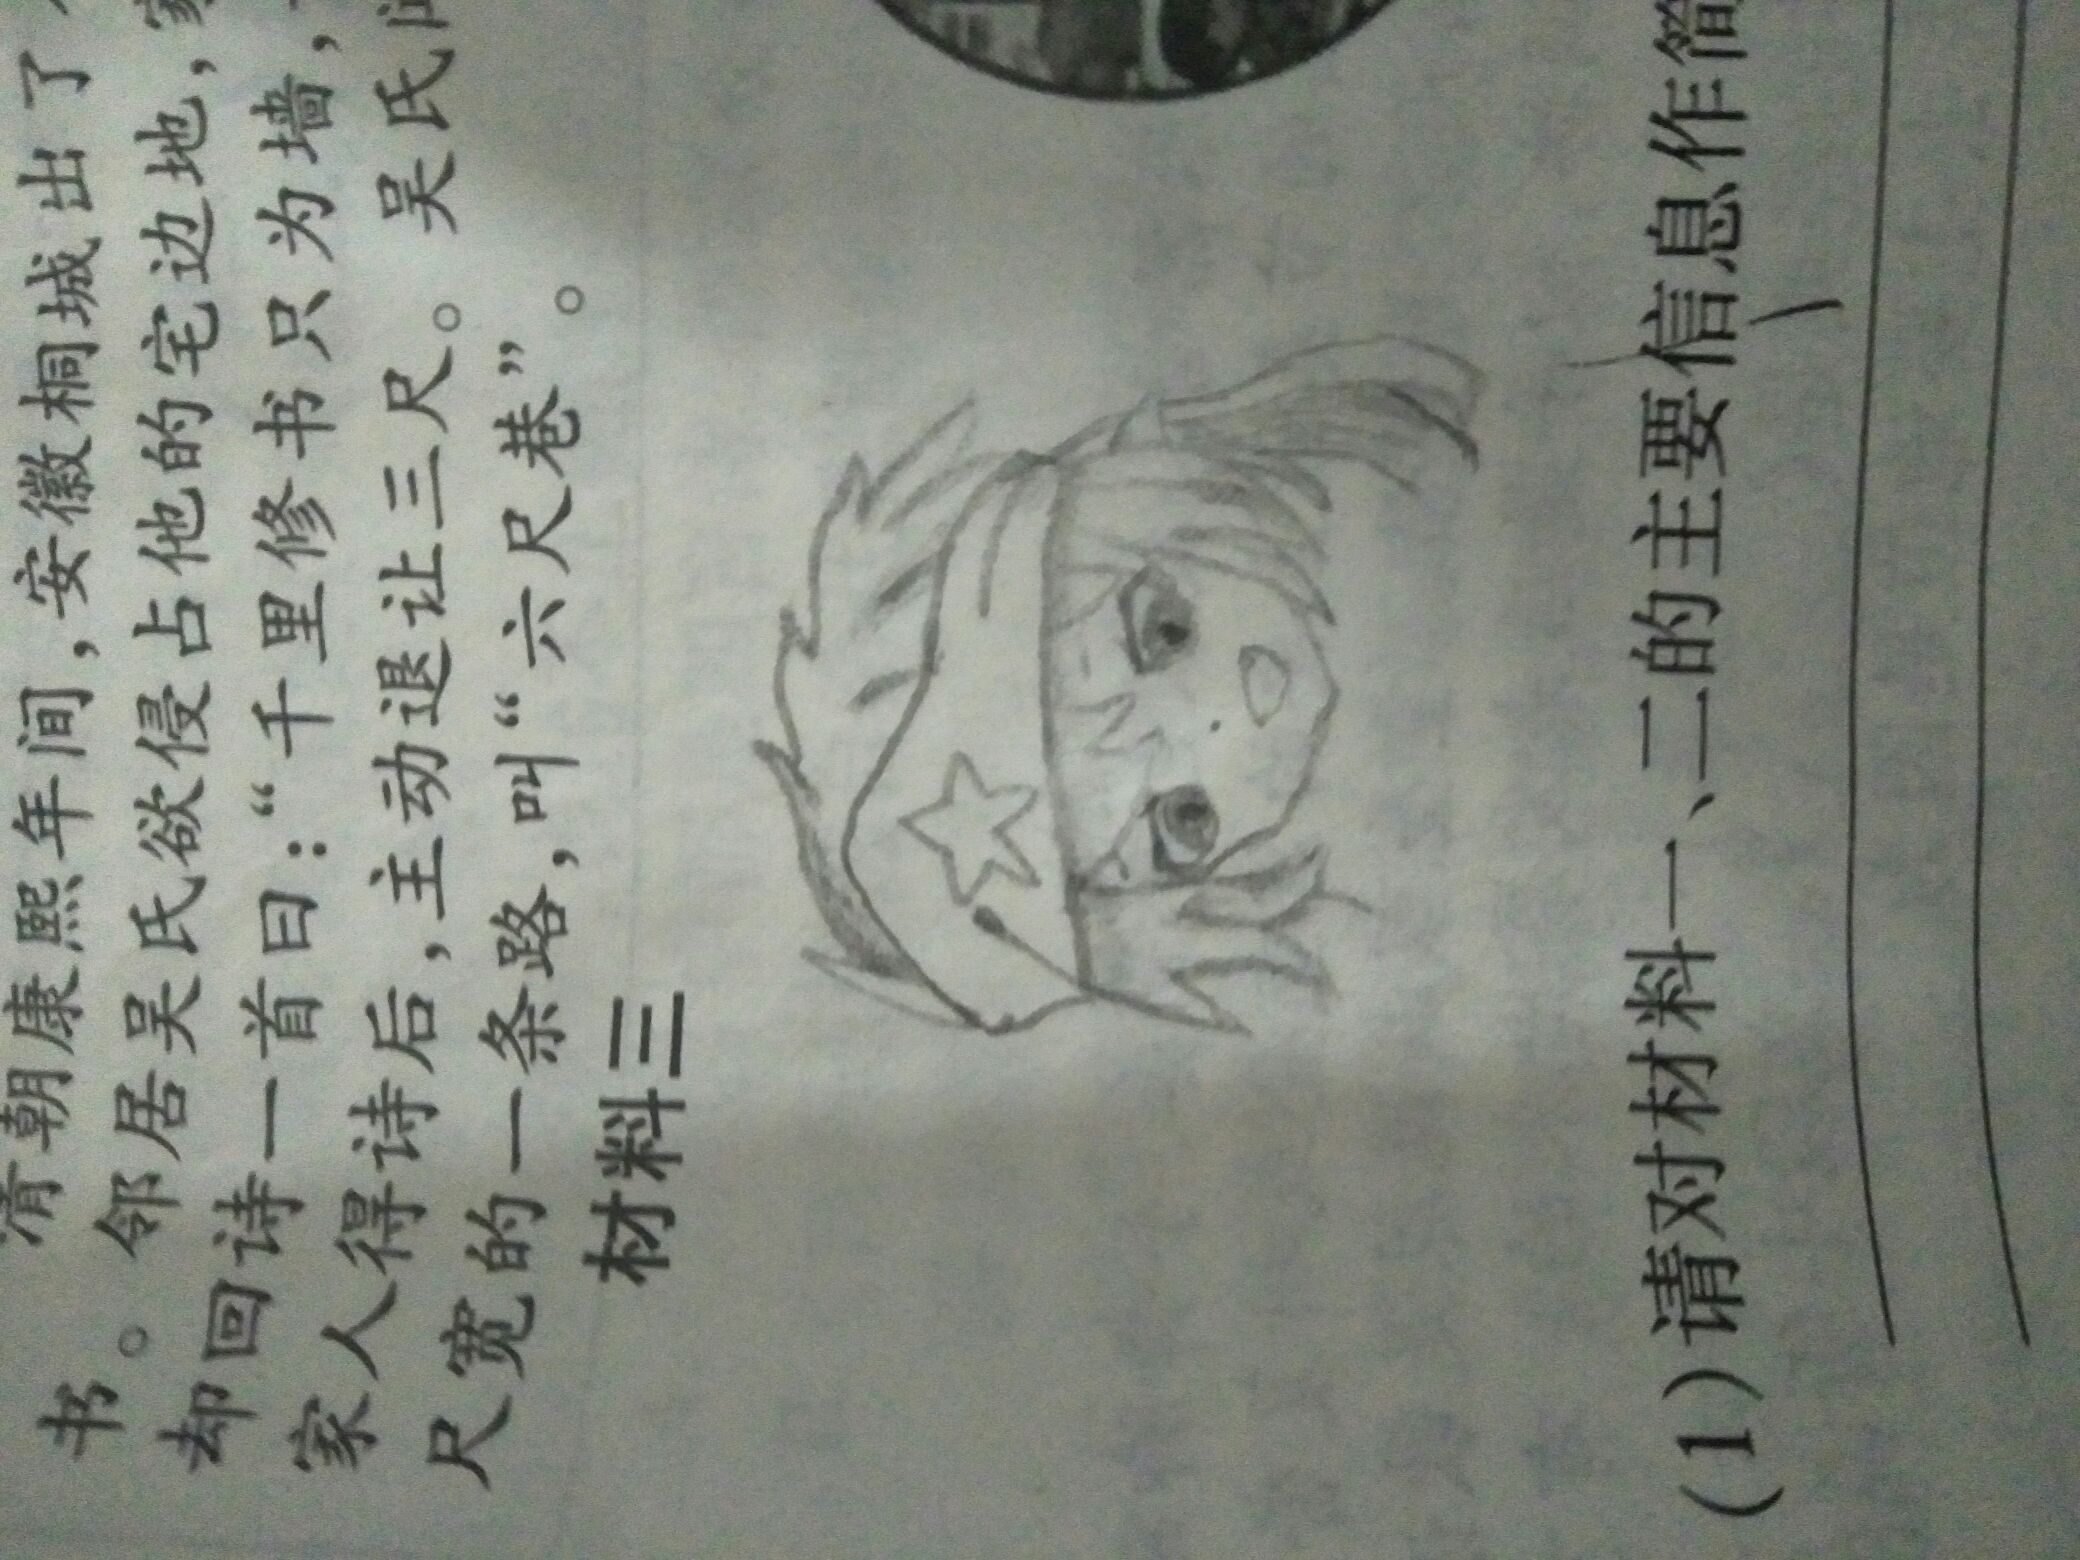 清朝康熙年间,安徽桐城出了
书。邻居吴氏欲侵占他的宅边地,家
却回诗一首曰:“千里修书只为墙,
家人得诗后,主动退让三尺。吴氏
尺宽的一条路,叫“六尺巷”。
材料三
(1)请对材料一、二的主要信息作简